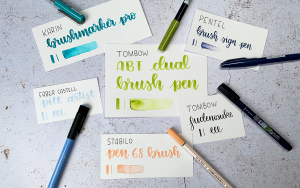 KARIN
brushmarker pro
PENTEL
brush sign pen
TOMBOW
ABT dual
brush pen
FABER CASTELL
pitt artist
TOMBOW
fudenosuke
STABILO
pen 68 brush